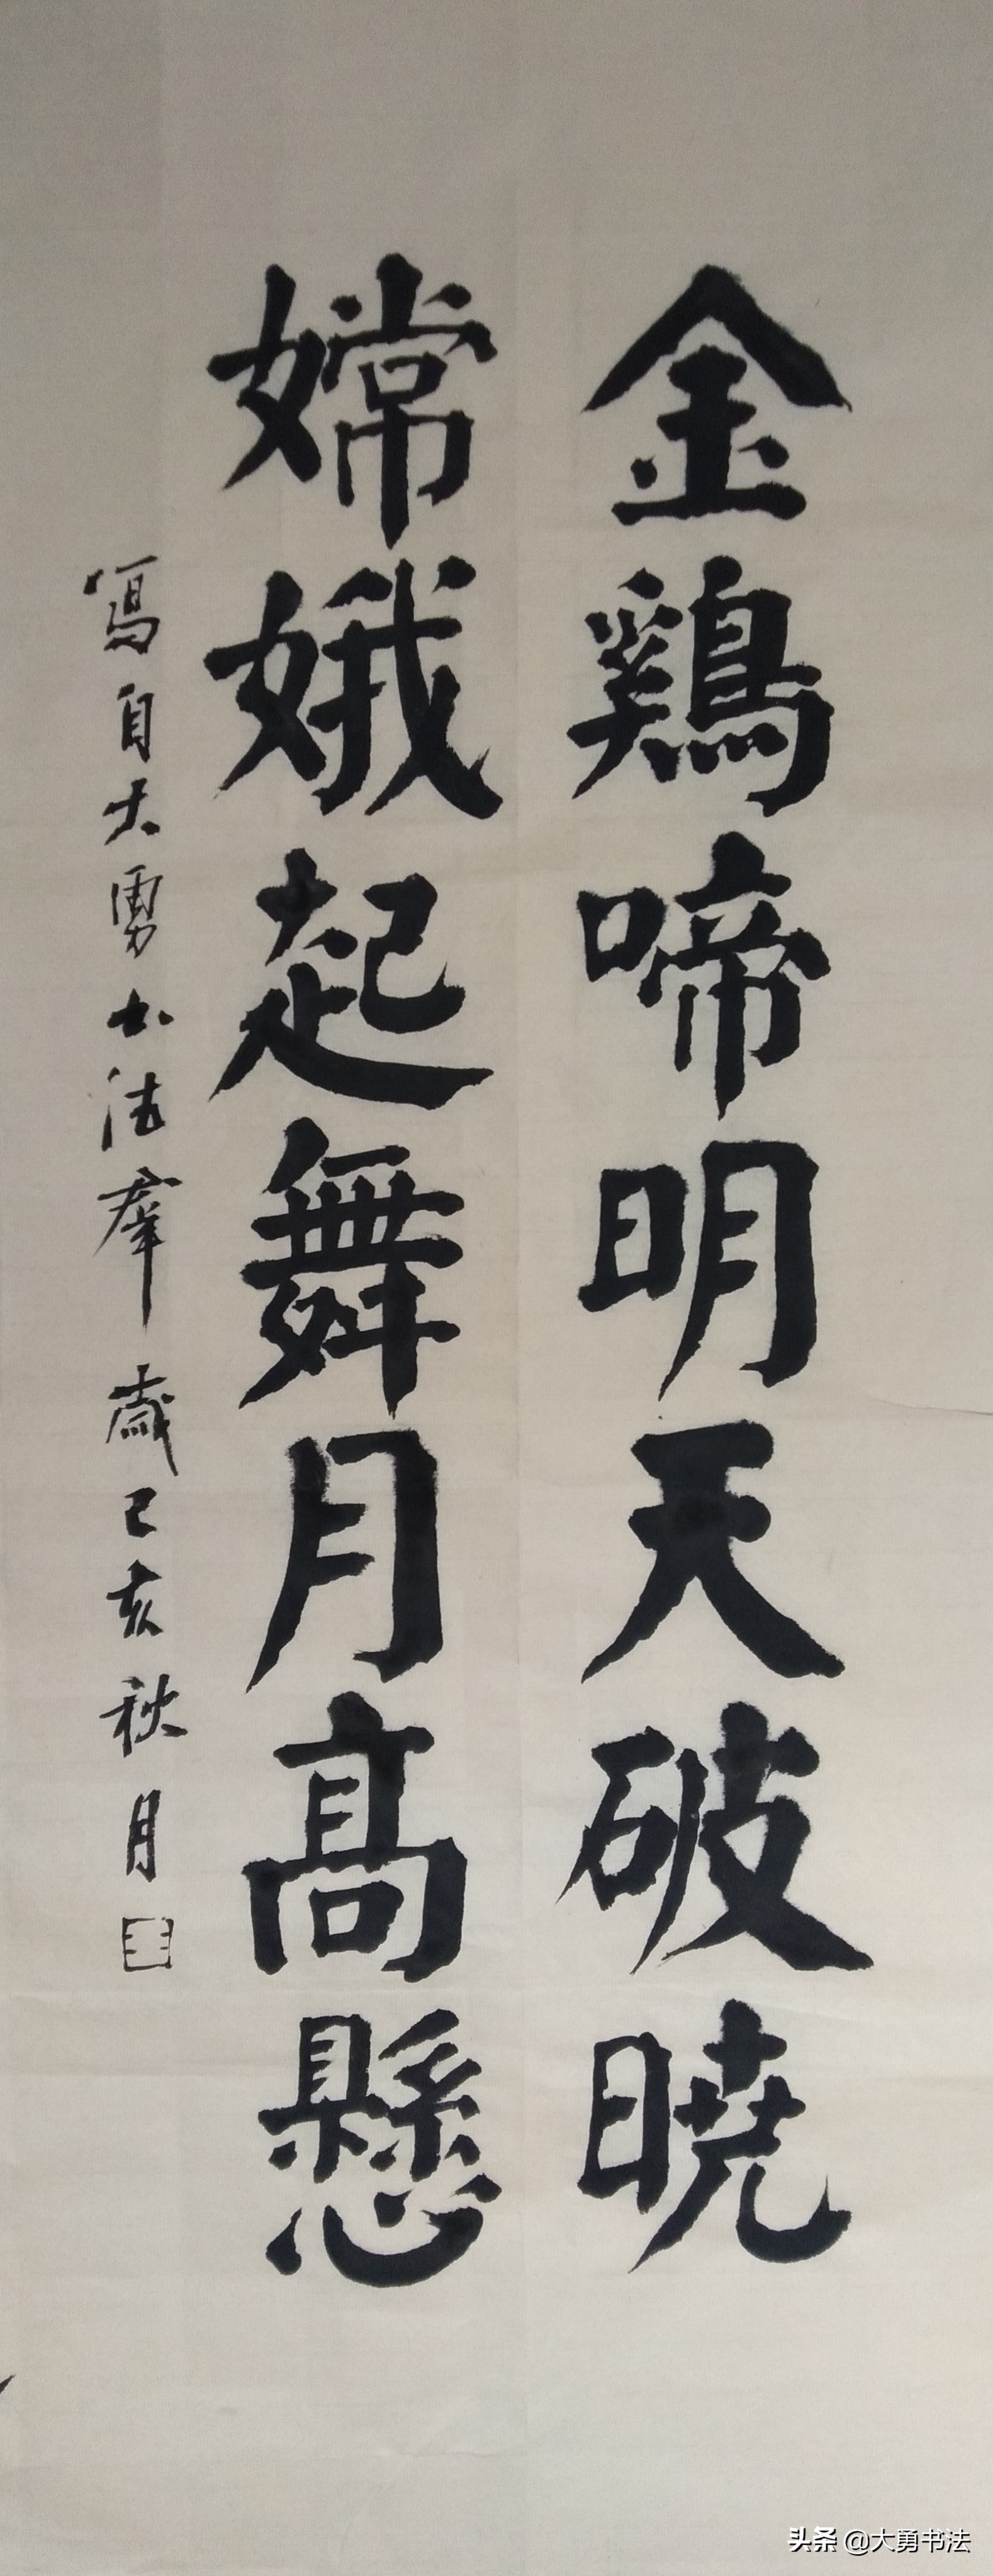 金鷄啼明天破曉
嫦娥起舞月高懸
寫自大勇书法羣歲己亥秋月
头条 @大勇书法